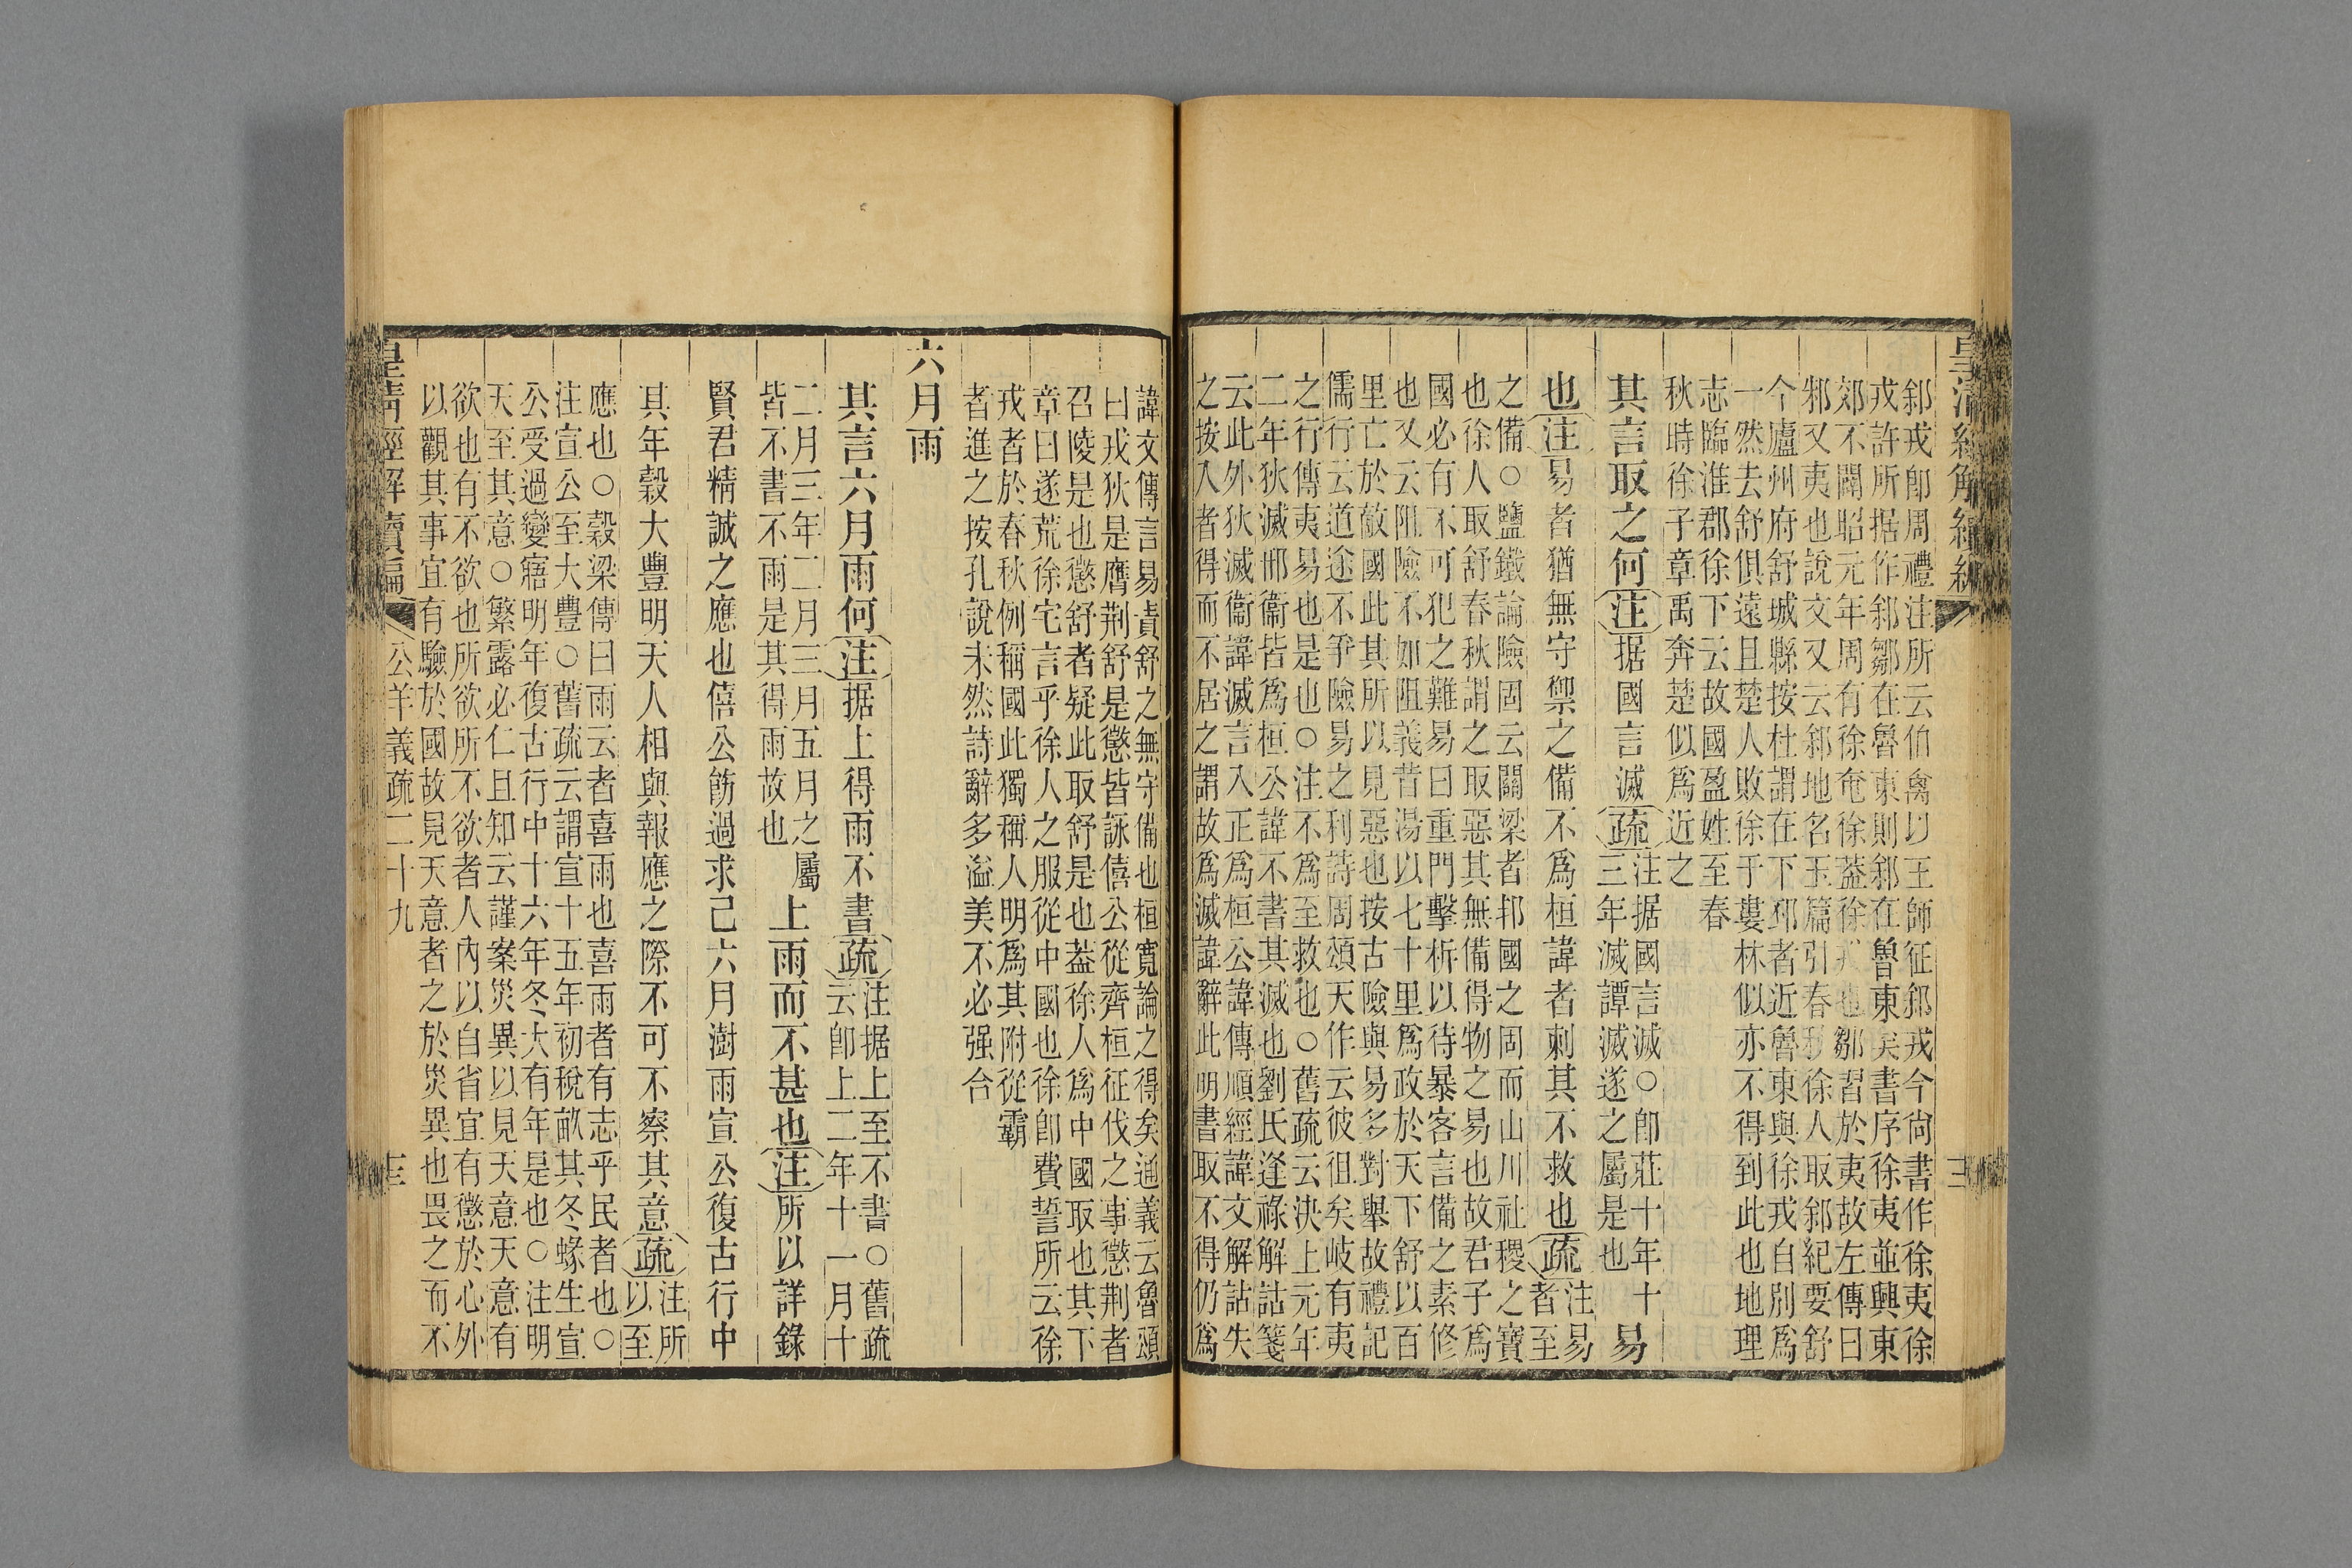 郳戎卽周禮注所云伯禽以王師征郳戎今尙書作徐夷徐
戎許所据作郳鄒在魯東則郳在魯東矣書序徐夷並興東
郊不闢昭元年周有徐奄徐葢徐戎也鄒習於夷故左傳曰
邾又夷也說文又云郳地名玉篇引春秋徐人取郳紀要舒
今廬州府舒城縣按杜謂在下邳者近魯東與徐戎自別爲
一然去舒俱遠且楚人敗徐于婁林似亦不得到此也地理
志臨淮郡徐下云故國盈姓至春
秋時徐子章禹奔楚似爲近之
其言取之何注据國言滅疏注据國言滅○卽莊十年十
三年滅譚滅遂之屬是也
易
也注易者猶無守禦之備不爲桓諱者刺其不救也疏注易
者至
之備○鹽鐵論險固云關梁者邦國之固而山川社稷之寶
也徐人取舒春秋謂之取惡其無備得物之易也故君子爲
國必有不可犯之難易曰重門擊柝以待暴客言備之素修
也又云阻險不如阻義昔湯以七十里爲政於天下舒以百
里亡於敵國此其所以見惡也按古險與易多對舉故禮記
儒行云道途不爭險易之利詩周頌天作云彼徂矣岐有夷
之行傳夷易也是也○注不爲至救也○舊疏云決上元年
二年狄滅邢衞皆爲桓公諱不書其滅也劉氏逢祿解詁箋
云此外狄滅衞諱滅言入正爲桓公諱傳順經諱文解詁失
之按入者得而不居之謂故爲滅諱辭此明書取不得仍爲
諱文傳言易責舒之無守備也桓寬論之得矣通義云魯頌
曰戎狄是膺荆舒是懲皆詠僖公從齊桓征伐之事懲荆者
召陵是也懲舒者疑此取舒是也葢徐人爲中國取也其下
章曰遂荒徐宅言乎徐人之服從中國也徐卽費誓所云徐
戎者於春秋例稱國此獨稱人明爲其附從霸
者進之按孔說未然詩辭多溢美不必强合
六月雨
其言六月雨何注据上得雨不書疏注据上至不書○舊疏
云卽上二年十一月十
二月三年二月三月五月之屬
皆不書不雨是其得雨故也
上雨而不甚也注所以詳錄
賢君精誠之應也僖公飭過求己六月澍雨宣公復古行中
其年穀大豐明天人相與報應之際不可不察其意疏注所
以至
應也○穀梁傳曰雨云者喜雨也喜雨者有志乎民者也○
注宣公至大豐○舊疏云謂宣十五年初稅畝其冬蝝生宣
公受過變寤明年復古行中十六年冬大有年是也○注明
天至其意○繁露必仁且知云謹案災異以見天意天意有
欲也有不欲也所欲所不欲者人內以自省宜有懲於心外
以觀其事宜有驗於國故見天意者之於災異也畏之而不
皇淸經解續編
公羊義疏二十九